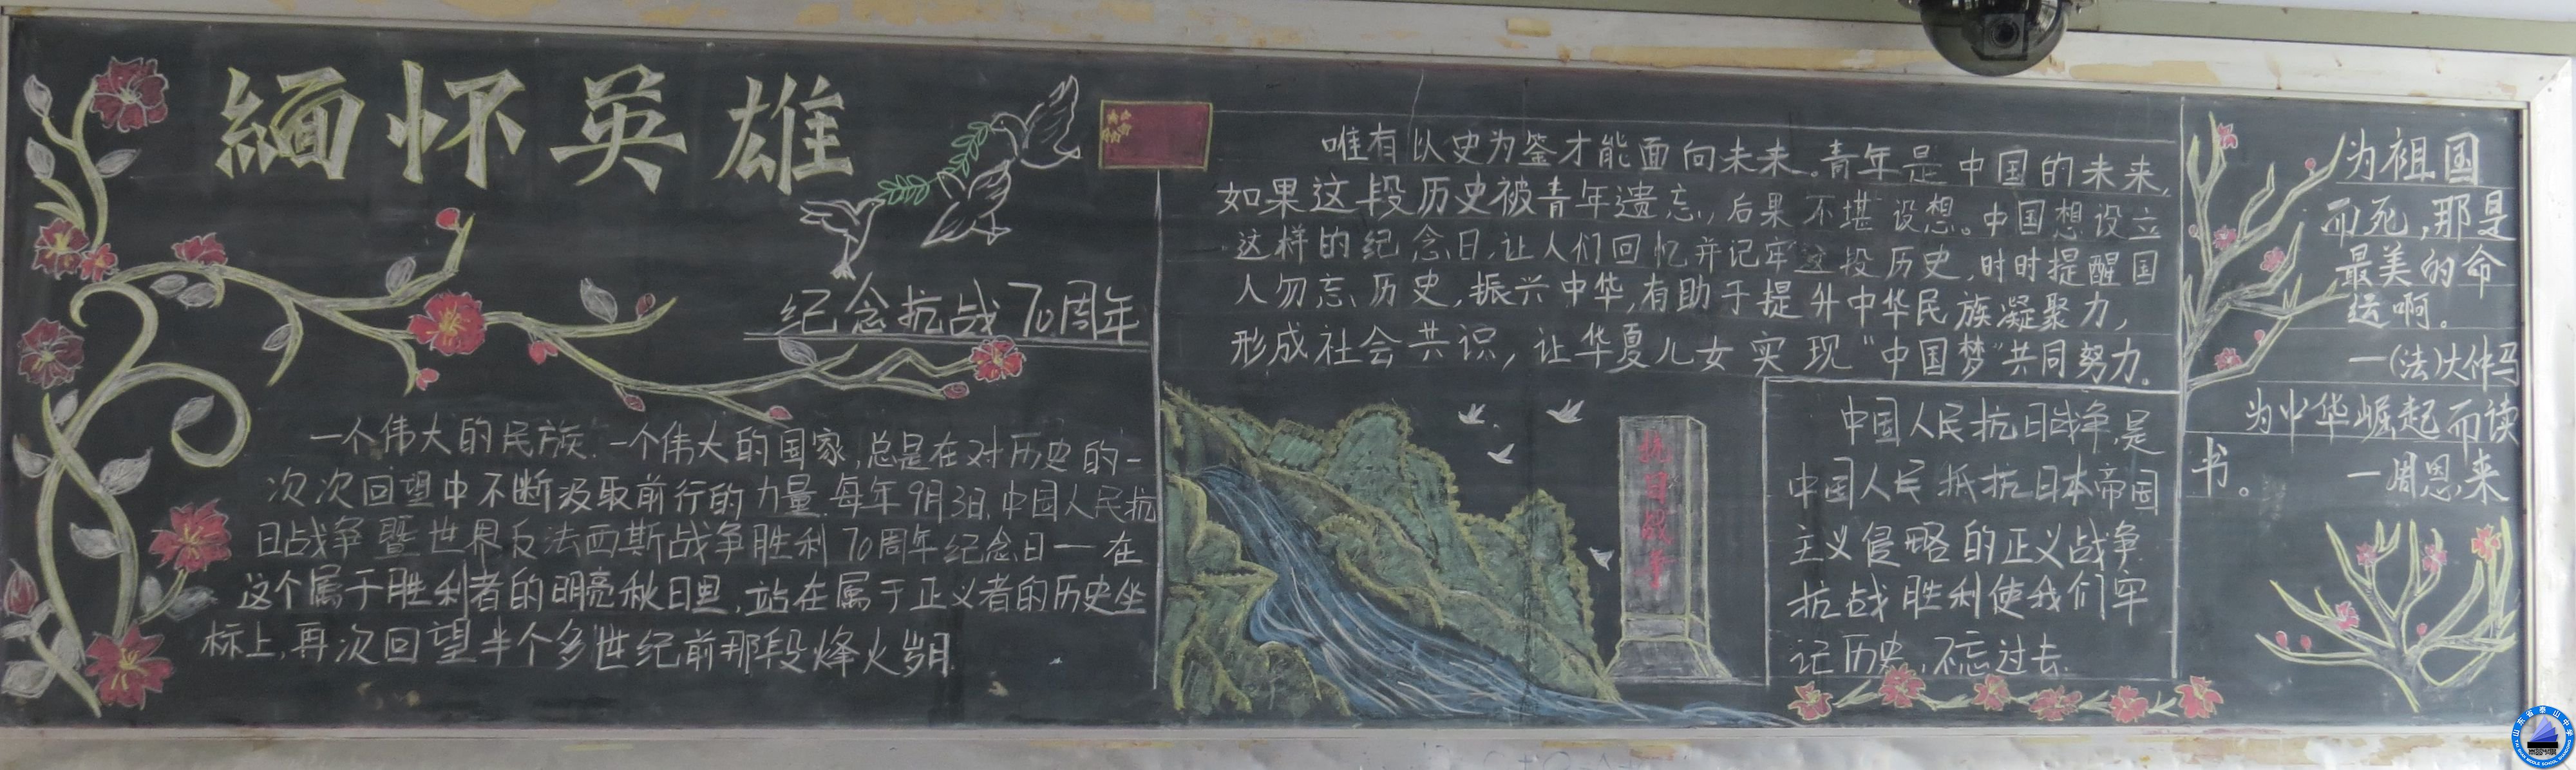 緬怀英雄
纪念抗战70周年
一个伟大的民族.一个伟大的国家,总是在对历史的一
次次回望中不断汲取前行的力量.每年9月3日,中国人民抗
日战争暨世界反法西斯战争胜利70周年纪念日一在
这个属于胜利者的明亮秋日里,站在属于正义者的历史坐
标上,再次回望半个多世纪前那段烽火岁月
唯有以史为鉴才能面向未来。青年是中国的未来,
如果这段历史被青年遗忘,后果不堪设想。中国想设立
这样的纪念日,让人们回忆并记牢这段历史,时时提醒国
人勿忘历史,振兴中华,有助于提升中华民族凝聚力,
形成社会共识,让华夏儿女实现“中国梦”共同努力。
抗日战争
中国人民抗日战争,是
中国人民抵抗日本帝国
主义侵略的正义战争
抗战胜利使我们牢
记历史,不忘过去.
为祖国
而死,那是
最美的命
运啊。
一(法)大仲马
为中华崛起而读
书。
一周恩来
山东省泰山中学